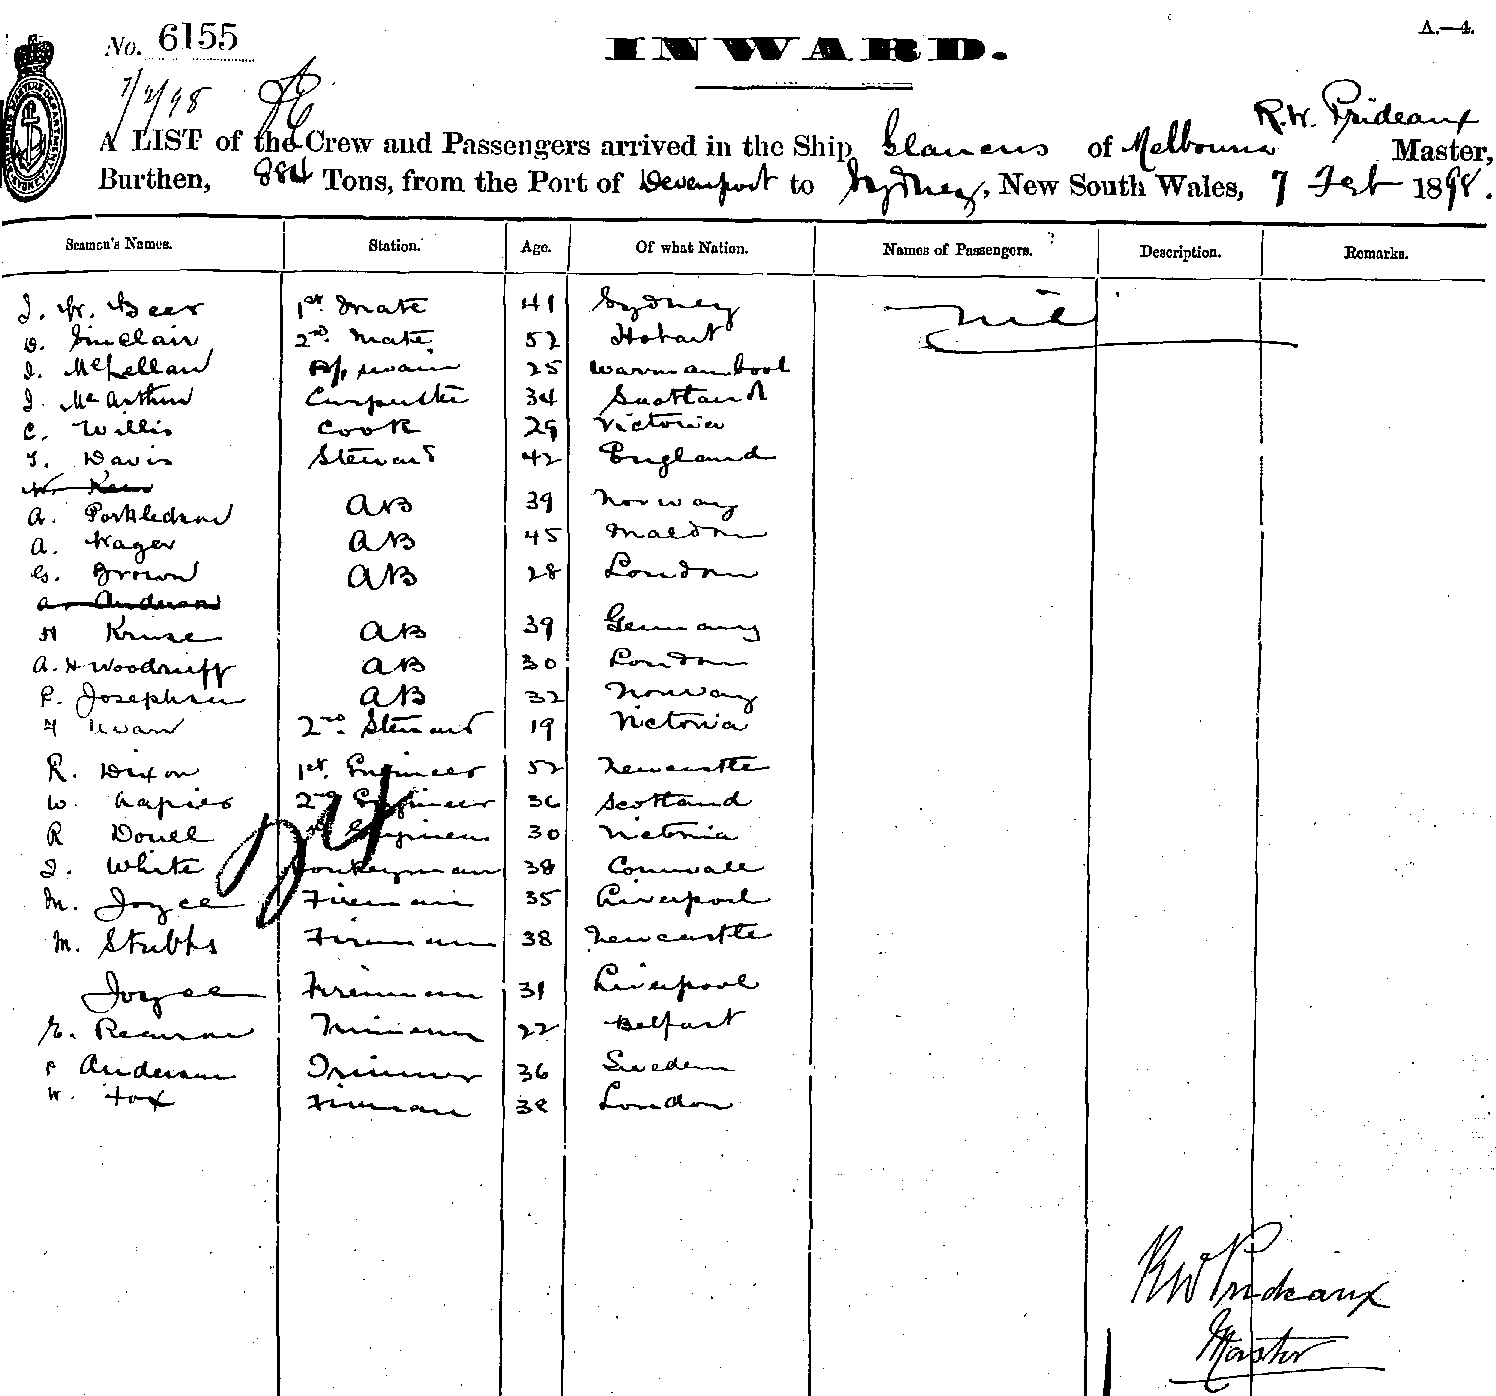 No. 6155
INWARD.
A.—4.
7/2/98
R. W. Prideaux
A LIST of the Crew and Passengers arrived in the Ship Glaucus of Melbourne Master,
Burthen, 884 Tons, from the Port of Devenport to Sydney, New South Wales, 7 Feb 1898.
Seamen's Names. Station. Age. Of what Nation. Names of Passengers. Description. Remarks.
J. W. Beer 1st Mate 41 Sydney nil
D. Sinclair 2nd Mate 52 Hobart
J. McLellan 25 Warrnambool
J. McArthur Carpenter 34 Scotland
C. Willis Cook 29 Victoria
T. Davis Steward 42 England
A. AB 39 Norway
A. Wager AB 45 Maldon
G. Brown AB 28 London
A. Anderson
H Kruse AB 39 Germany
A. H Woodruff AB 30 London
P. Josephsen AB 32 Norway
2nd Steward 19 Victoria
R. Dixon 1st Engineer 52 Newcastle
W. Napier 2nd Engineer 36 Scotland
R Engineer 30 Victoria
J. White Donkeyman 38 Cornwall
M. Joyce Fireman 35 Liverpool
M. Stubbs Fireman 38 Newcastle
Joyce Fireman 31 Liverpool
Trimmer 22 Belfast
P Anderson Trimmer 36 Sweden
W. Fox Fireman 38 London
24
R W Prideaux
Master